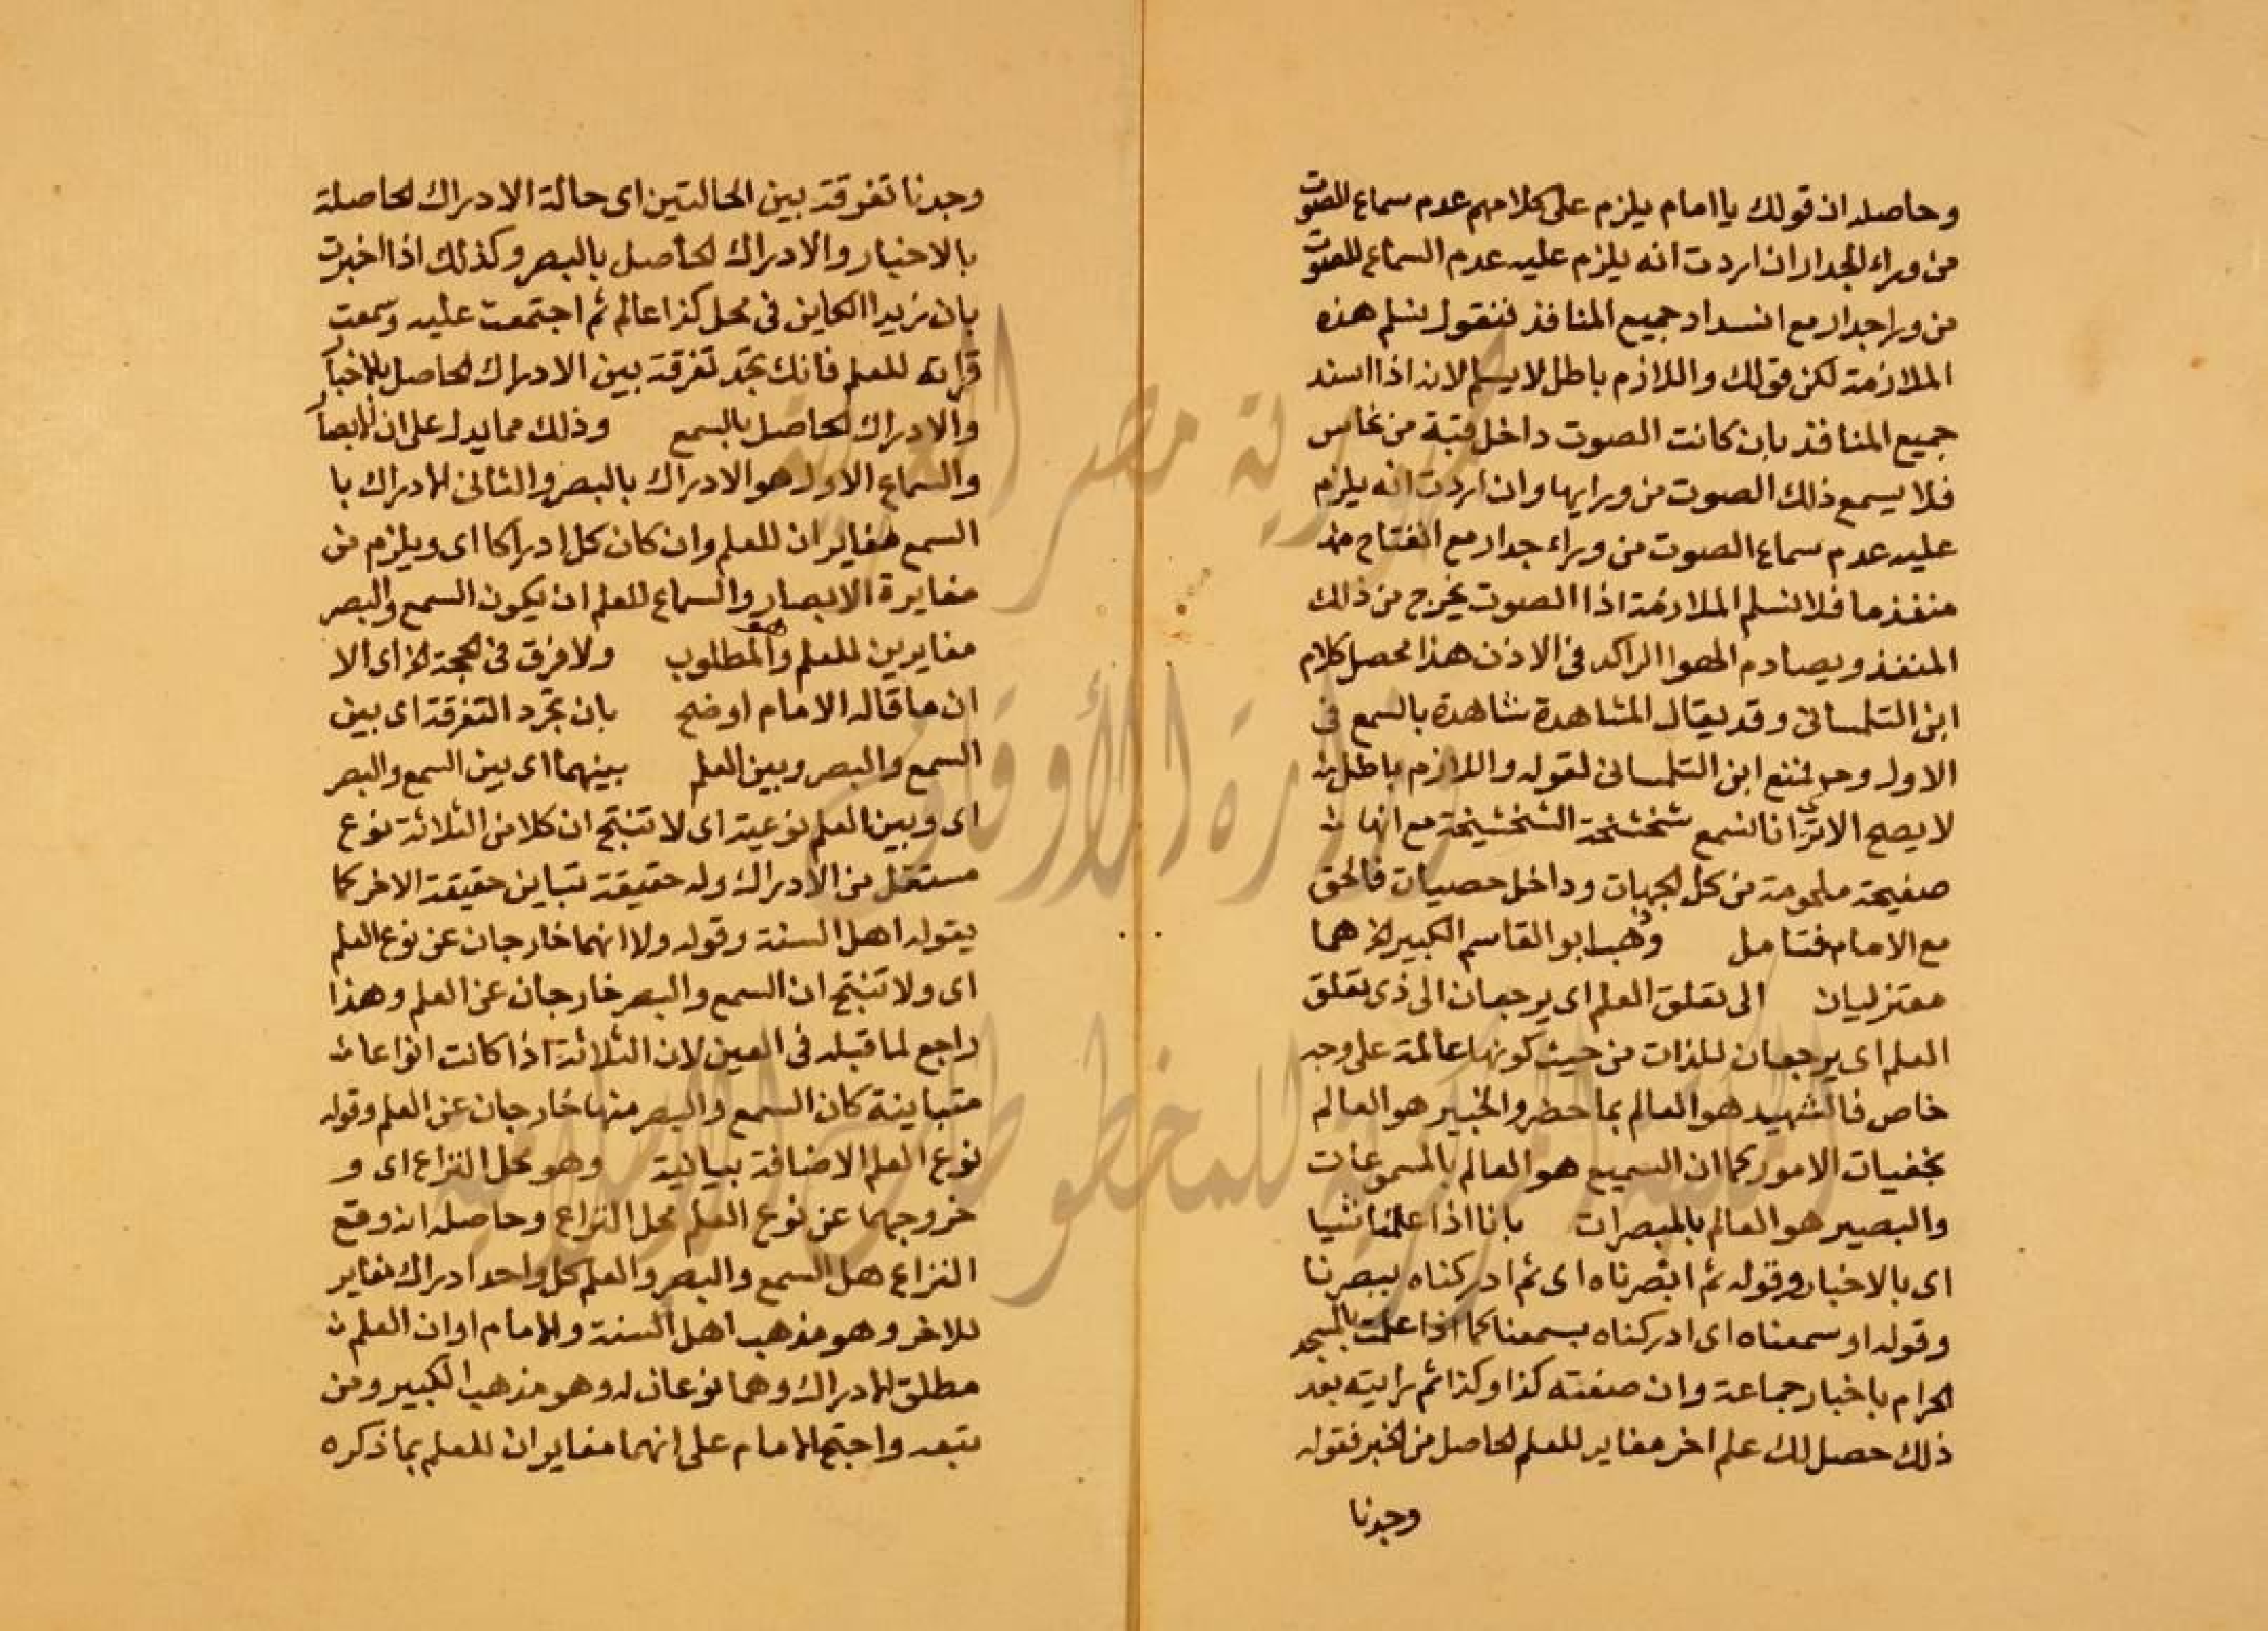 وحاصله ان قولك يا امام يلزم على كلامهم عدم سماع الصوت
من وراء الجدار ان اردت انه يلزم عليه عدم السماع للصوت
من ورا جدار مع انسداد جميع المنافذ فنقول نسلم هذه
الملازمة لكن قولك واللازم باطل لا يسلم لانه اذا انسد
جميع المنافذ بان كانت الصوت داخل قبة من نحاس
فلا يسمع ذلك الصوت من ورايها وان اردت انه يلزم
عليه عدم سماع الصوت من وراء جدار مع انفتاح
منفذ ما فلا نسلم الملازمة اذا الصوت يخرج من ذلك
المنفذ ويصادم الهوا الراكد في الاذن هذا محصل كلام
ابن التلمساني وقد يقال المشاهدة شاهدة بالسمع في
الاول وح فمنع ابن التلمساني لقوله واللازم باطل
لا يصح الا ترى انا نسمع شخشخة الشخشيخة مع انها
صفيحة ملحومة من كل الجهات وداخل حصيات فالحق
مع الامام فتامل وذهب ابو القاسم الكبير الخ هما
معتزليان الى تعلق العلم اى يرجعان الى ذى تعلق
العلم اى يرجعان للذات من حيث كونها عالمة على وجه
خاص فالشهيد هو العالم بما حضر والخبير هو العالم
بخفيات الامور كما ان السميع هو العالم بالمسموعات
والبصير هو العالم بالمبصرات بانا اذا علمنا شيا
اى بالاخبار وقوله ثم ابصرناه اى ثم ادركناه ببصرنا
وقوله او سمعناه اى ادركناه بسمعنا كما اذا علمت بالمسجد
الحرام باخبار جماعة وان صفته كذا وكذا ثم رايته بعد
ذلك حصل لك علم اخر مغاير للعلم الحاصل من الخبر فقوله
وجدنا
وجدنا تفرقة بين الحالتين اى حالة الادراك الحاصلة
بالاخبار والادراك الحاصل بالبصر وكذلك اذا اخبرت
بان زيدا الكاين في محل كذا عالم ثم اجتمعت عليه وسمعت
قراته للعلم فانك تجد تفرقة بين الادراك الحاصل بالاخبار
والادراك الحاصل بالسمع وذلك مما يدل على ان الابصار
والسماع الاول هو الادراك بالبصر والثاني الادراك با
السمع مغايران للعلم وان كان كل ادراكا اى ويلزم من
مغايرة الابصار والسماع للعلم ان يكون السمع والبصر
مغايرين للعلم وهو المطلوب ولا فرق في الحجة الخ اى الا
ان ما قاله الامام اوضح بان تجرد التفرقة اى بين
السمع والبصر وبين العلم بينهما اى بين السمع والبصر
اى وبين العلم نوعية اى لا تنتج ان كلا من الثلاثة نوع
مستقل من الادراك وله حقيقة تباين حقيقة الاخر كما
يقوله اهل السنة وقوله ولا انهما خارجان عن نوع العلم
اى ولا تنتج ان السمع والبصر خارجان عن العلم وهذا
راجع لما قبله في العين لان الثلاثة اذا كانت انواعا
متباينة كان السمع والبصر منها خارجان عن العلم وقوله
نوع العلم الاضافة بيانية وهو محل النزاع اى و
خروجهما عن نوع العلم محل النزاع وحاصله انه وقع
النزاع هل السمع والبصر والعلم كل واحد ادراك مغاير
للاخر وهو مذهب اهل السنة والامام او ان العلم
مطلق الادراك وهما نوعان له وهو مذهب الكبير ومن
تبعه واحتج الامام على انهما مغايران للعلم بما ذكره
جمهورية مصر العربية
وزارة الأوقاف
المكتبة المركزية للمخطوطات الإسلامية